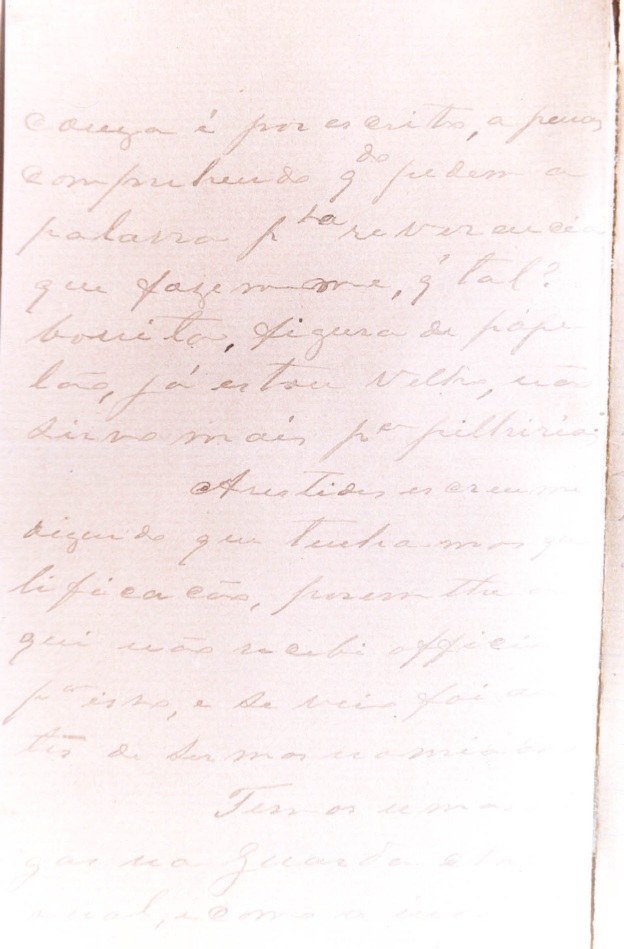 couza é por escrito, a penas
comprehendo qdo pedem a
palavra pla reverencia
que fazem-me, q' tal?
bonito, figura de pape
lão, já estou velho, não
sirvo mais pa pilherias
Arestides escreveu me
dizendo que tenhamos qua
lificacão, porem
qui não recebi offici
pa isso, e se veio foi an
tes de sermos nomiado
Temos uma
gas na Guarda
e como a